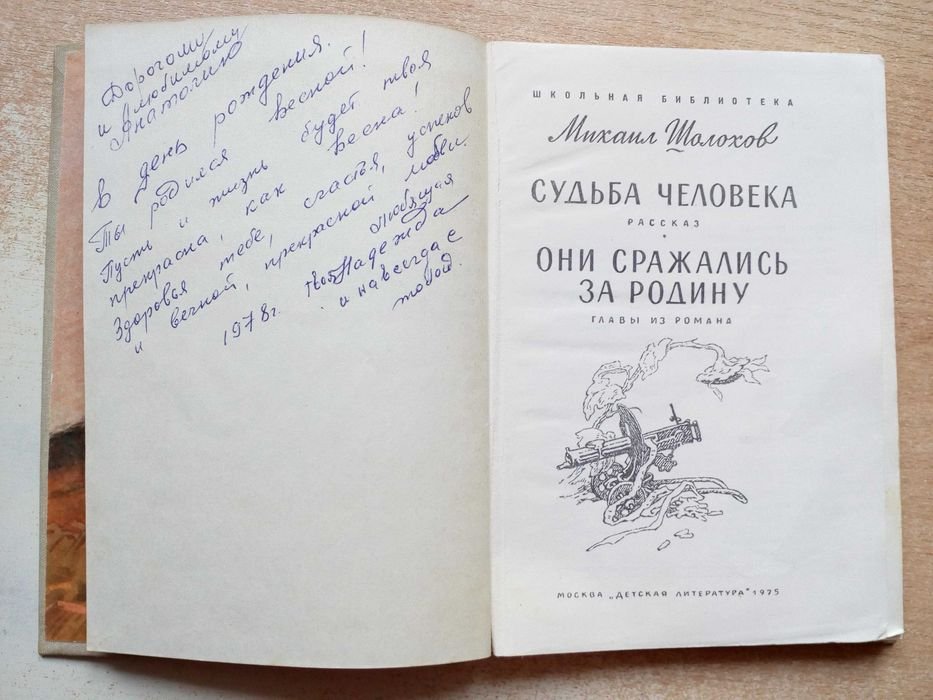 Дорогому
и любимому
Анатолию
В день рождения.
Ты родился весной!
Пусть и жизнь будет твоя
прекрасна, как весна!
Здоровья тебе, счастья, успехов
и вечной, прекрасной любви.
1978г. любящая
Надежда
и навсегда с
тобой.
ШКОЛЬНАЯ БИБЛИОТЕКА
Михаил Шолохов
СУДЬБА ЧЕЛОВЕКА
РАССКАЗ
ОНИ СРАЖАЛИСЬ
ЗА РОДИНУ
ГЛАВЫ ИЗ РОМАНА
МОСКВА „ДЕТСКАЯ ЛИТЕРАТУРА" 1975